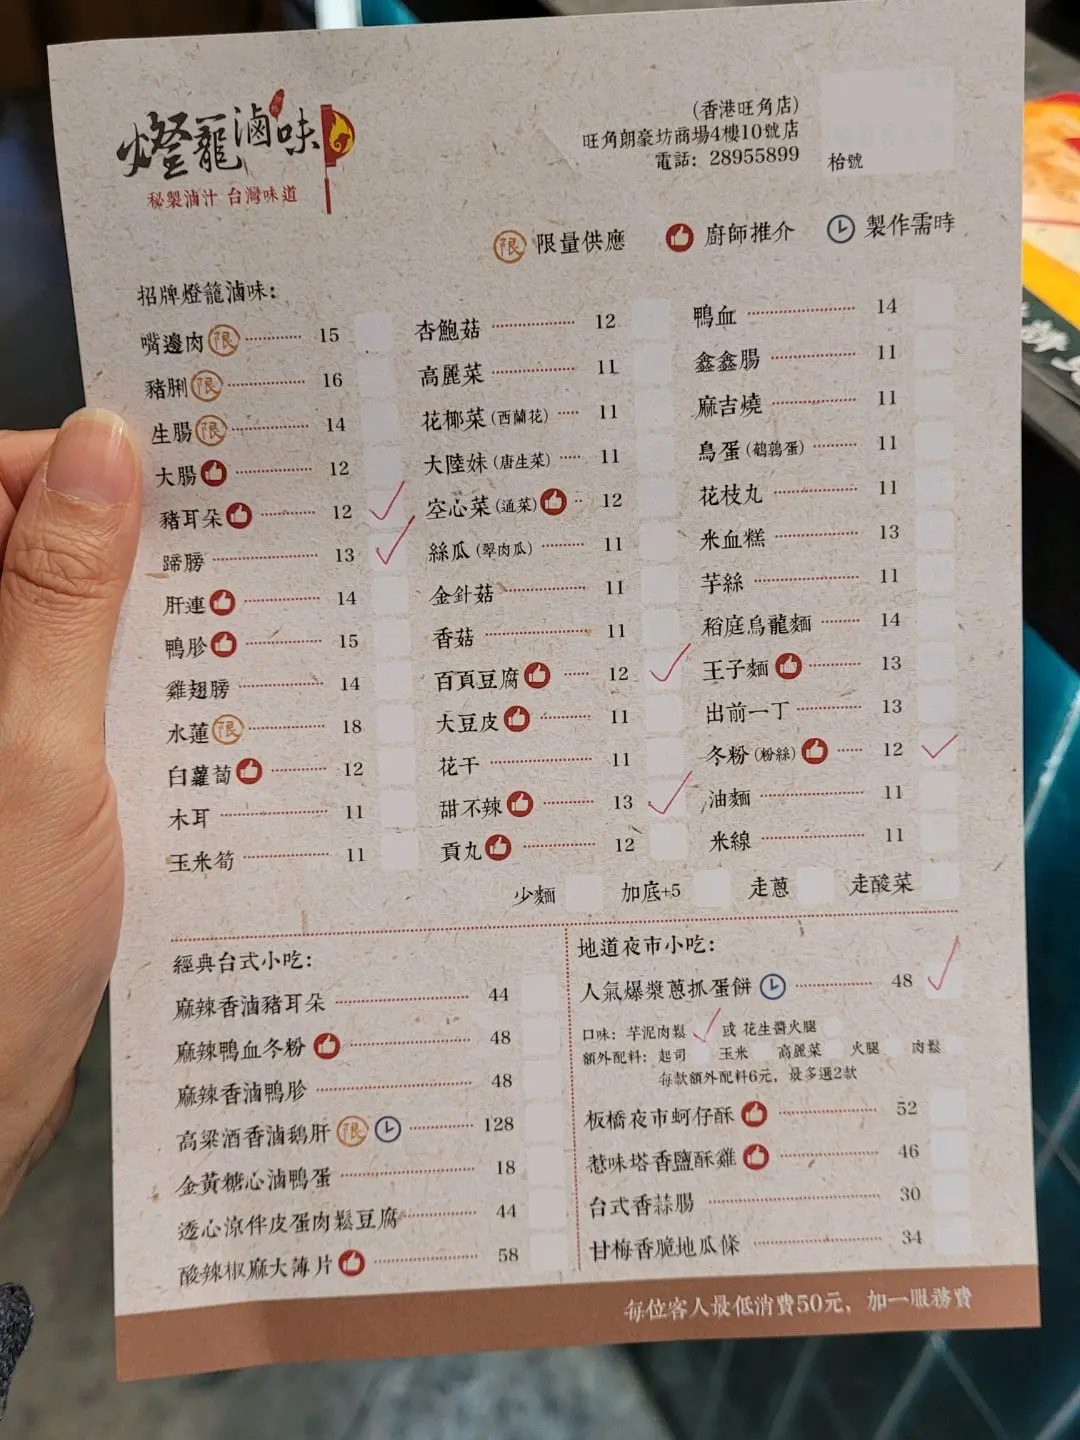 燈籠滷味
秘製滷汁 台灣味道
(香港旺角店)
旺角朗豪坊商場4樓10號店
電話: 28955899
枱號
限 限量供應 廚師推介 製作需時
招牌燈籠滷味:
嘴邊肉 限 15
豬脷 限 16
生腸 限 14
大腸 12
豬耳朵 12
蹄膀 13
肝連 14
鴨胗 15
雞翅膀 14
水蓮 限 18
白蘿蔔 12
木耳 11
玉米筍 11
杏鮑菇 12
高麗菜 11
花椰菜(西蘭花) 11
大陸妹(唐生菜) 11
空心菜(通菜) 12
絲瓜(翠肉瓜) 11
金針菇 11
香菇 11
百頁豆腐 12
大豆皮 11
花干 11
甜不辣 13
貢丸 12
鴨血 14
鑫鑫腸 11
麻吉燒 11
鳥蛋(鵪鶉蛋) 11
花枝丸 11
米血糕 13
芋絲 11
稻庭烏龍麵 14
王子麵 13
出前一丁 13
冬粉(粉絲) 12
油麵 11
米線 11
少麵 加底+5 走蔥 走酸菜
經典台式小吃:
麻辣香滷豬耳朵 44
麻辣鴨血冬粉 48
麻辣香滷鴨胗 48
高粱酒香滷鵝肝 限 128
金黃糖心滷鴨蛋 18
透心涼伴皮蛋肉鬆豆腐 44
酸辣椒麻大薄片 58
地道夜市小吃:
人氣爆漿蔥抓蛋餅 48
口味: 芋泥肉鬆 或 花生醬火腿
額外配料: 起司 玉米 高麗菜 火腿 肉鬆
每款額外配料6元, 最多選2款
板橋夜市蚵仔酥 52
惹味塔香鹽酥雞 46
台式香蒜腸 30
甘梅香脆地瓜條 34
每位客人最低消費50元, 加一服務費